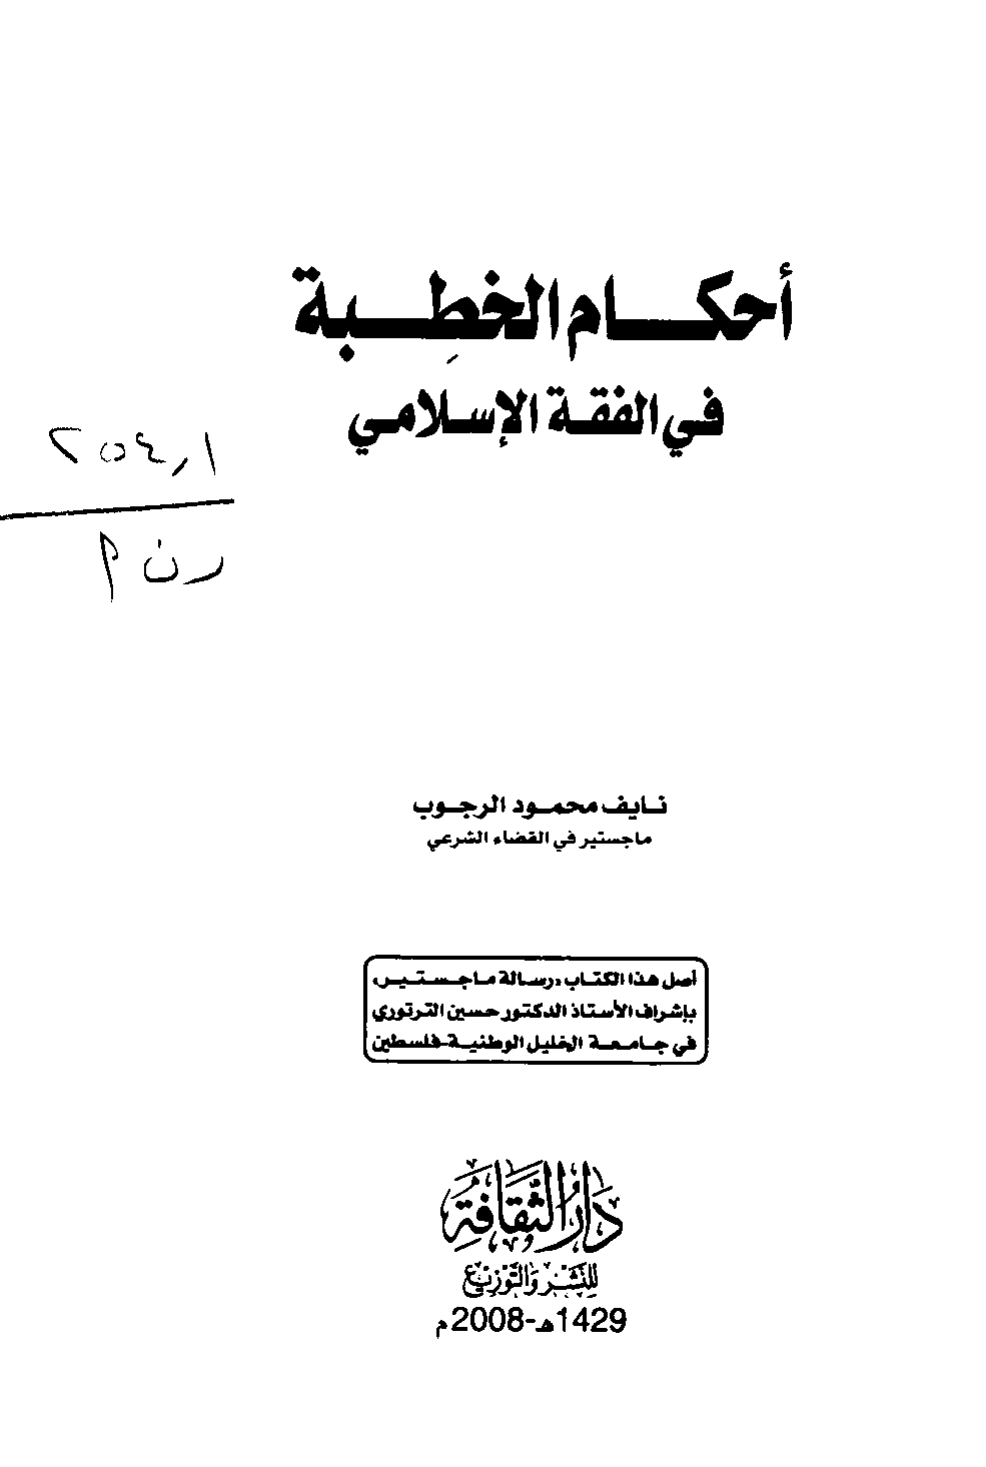 أحكام الخِطبة
في الفقة الإسلامي
٢٥٤,١
رن م
نايف محمود الرجوب
ماجستير في القضاء الشرعي
أصل هذا الكتاب «رسالة ماجستير»
بإشراف الأستاذ الدكتور حسين الترتوري
في جامعة الخليل الوطنية-فلسطين
دَارُ الثَّقَافَة
للنَّشْرِ وَالتَّوْزِيع
1429هـ-2008م